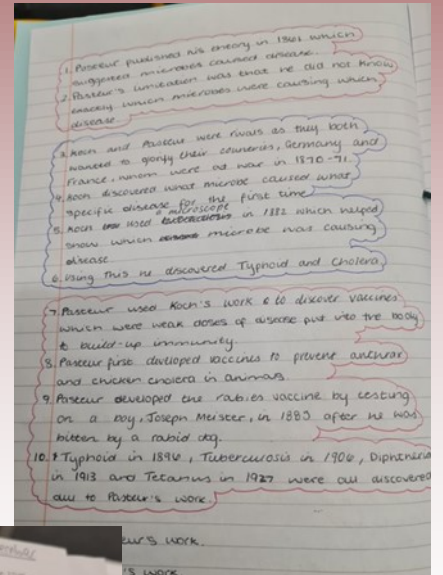 1. Pasteur published his theory in 1861 which
suggested microbes caused disease.
2. Pasteur's limitation was that he did not know
exactly which microbes were causing which
disease.
3. Koch and Pasteur were rivals as they both
wanted to glorify their countries, Germany and
France, whom were at war in 1870-71.
4. Koch discovered what microbe caused what
specific disease for the first time
5. Koch used a microscope in 1882 which helped
show which microbe was causing
disease
6. Using this he discovered Typhoid and Cholera
7. Pasteur used Koch's work to discover vaccines
which were weak doses of disease put into the body
to build-up immunity.
8. Pasteur first developed vaccines to prevent anthrax
and chicken cholera in animals.
9. Pasteur developed the rabies vaccine by testing
on a boy, Joseph Meister, in 1885 after he was
bitten by a rabid dog.
10. Typhoid in 1896, Tuberculosis in 1906, Diphtheria
in 1913 and Tetanus in 1927 were all discovered
all to Pasteur's work.
eur's work.
's work.